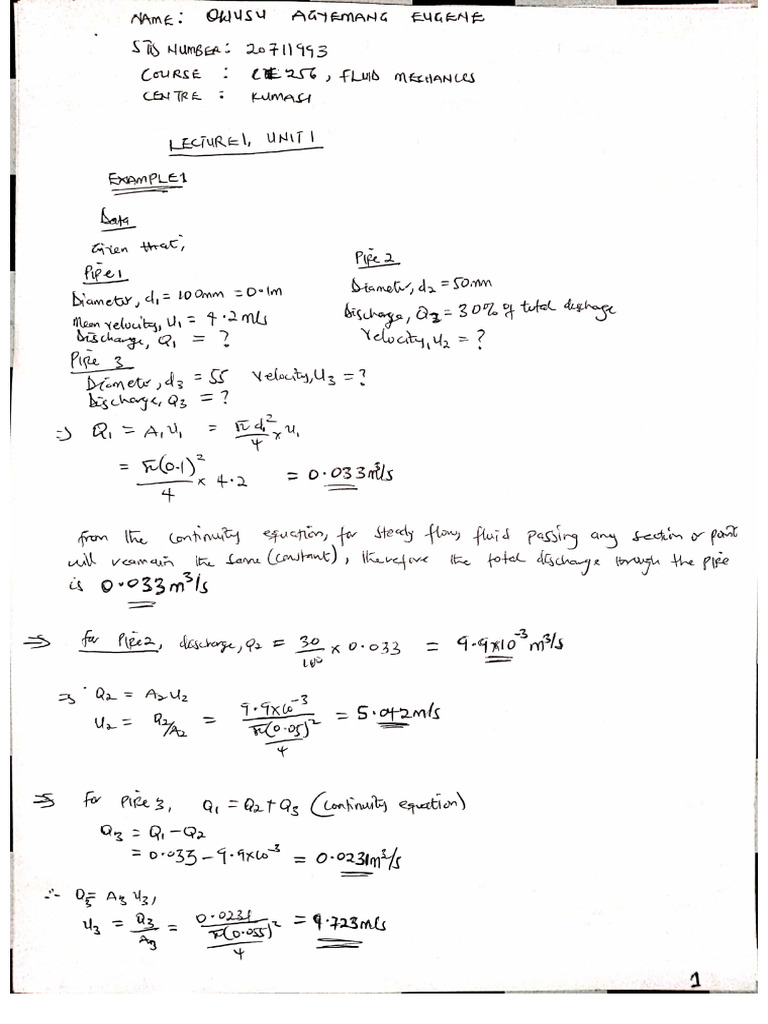 NAME: OWUSU AGYEMANG EUGENE
STD NUMBER: 20711993
COURSE : CE 256, FLUID MECHANICS
CENTRE : KUMASI
LECTURE 1, UNIT 1
EXAMPLE 1
Data
Given that;
Pipe 1
Diameter, d₁ = 100mm = 0.1m
Mean velocity, U₁ = 4.2 m/s
Discharge, Q₁ = ?
Pipe 2
Diameter, d₂ = 50mm
Discharge, Q₂ = 30% of total discharge
Velocity, U₂ = ?
Pipe 3
Diameter, d₃ = 55 velocity, U₃ = ?
Discharge, Q₃ = ?
⇒ Q₁ = A₁U₁ = πd₁²/4 × U₁
= π(0.1)²/4 × 4.2 = 0.033m³/s
from the continuity equation, for steady flow, fluid passing any section or point
will reamain the same (constant), therefore the total discharge through the pipe
is 0.033 m³/s
⇒ for Pipe 2, discharge, Q₂ = 30/100 × 0.033 = 9.9×10⁻³ m³/s
⇒ Q₂ = A₂U₂
U₂ = Q₂/A₂ = 9.9×10⁻³/(π(0.05)²/4) = 5.042m/s
⇒ for Pipe 3, Q₁ = Q₂ + Q₃ (continuity equation)
Q₃ = Q₁ - Q₂
= 0.033 - 9.9×10⁻³ = 0.0231m³/s
∴ Q₃ = A₃U₃,
U₃ = Q₃/A₃ = 0.0231/(π(0.055)²/4) = 9.723m/s
1